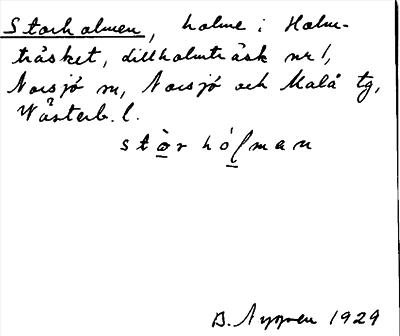 Storholmen, holme i Holm-
träsket, dillholmträsk nr 1,
Norsjö sn, Norsjö och Malå tg,
Västerb. l.
stòr hólman
B. Nyman 1929